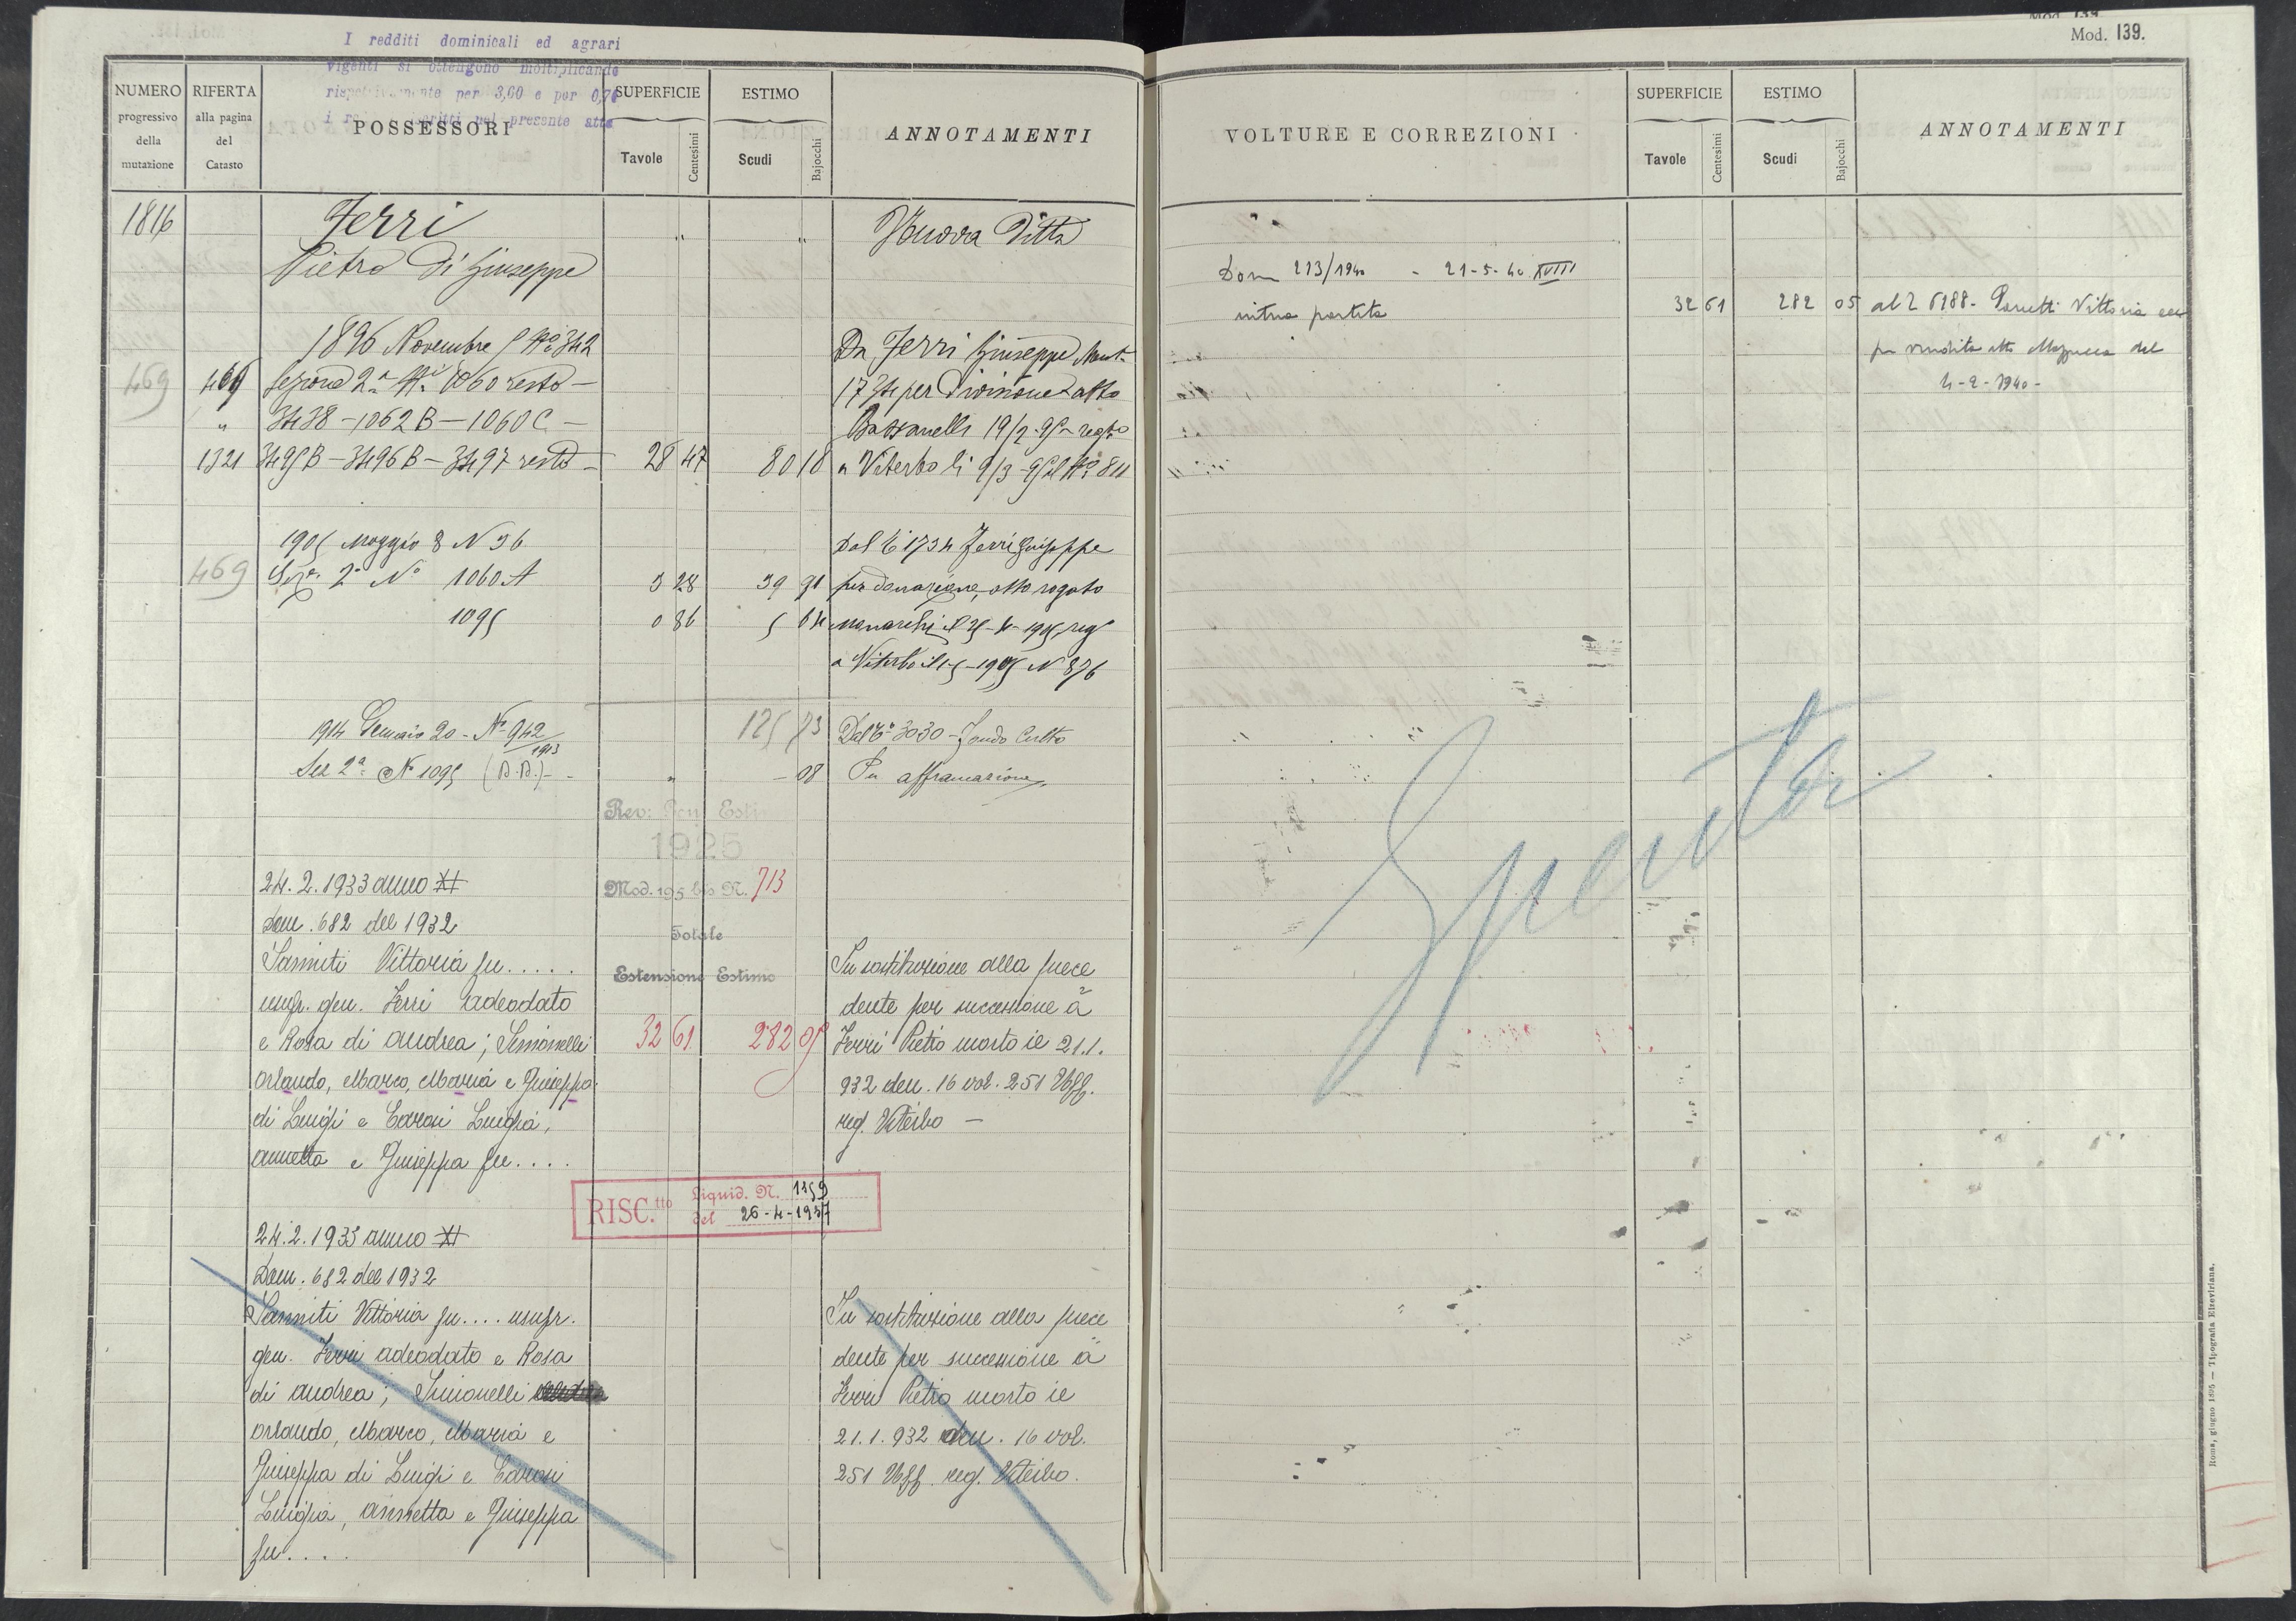 Mod. 139.
I redditi dominicali ed agrari
vigenti si ottengono moltiplicando
rispettivamente per 3,60 e per 0,76
i re iscritti nel presente atto
NUMERO progressivo della mutazione
RIFERTA alla pagina del Catasto
POSSESSORI
SUPERFICIE
Tavole Centesimi
ESTIMO
Scudi Bajocchi
ANNOTAMENTI
1816 Ferri " " Nuova Ditta
Pietro di Giuseppe
1896 Novembre 5 No 342 Da Ferri Giuseppe
469 469 Sezione 2a Ni 1060 resto — 1734 per divisione atto
" 3438 — 1062 B — 1060 C — Bassanelli 19/2
1321 3495 B — 3496 B — 3497 resto — 28 47 80 10 a Viterbo li 9/3 No 811
1905 Maggio 8 N 36 Dal to 1734 Ferri Giuseppe
469 Seze 2a No 1060 A 3 28 39 91 per donazione, atto rogato
1095 0 86 5 64 regto
a Viterbo il 1-5-1905 N 876
125 73
1914 Gennaio 20 - No 942/1913 Dal to 3030 - Fondo Culto
Sez 2a No 1095 (D.D.) - " - 08 Per affrancazione
Rev: Gen. Esti
1925
Mod. 195 bis N. 713
Totale
Estensione Estimo
32 61 282 05
24.2.1933 anno XI
Dom. 682 del 1932
Sanniti Vittoria fu..... In sostituzione alla prece
usufr. gen. Ferri Adeodato dente per successione a
e Rosa di Andrea; Simonelli Ferri Pietro morto il 21.1.
Orlando, Marco, Maria e Giuseppa 932 den. 16 vol. 251 Uff.
di Luigi e Carosi Luigia, reg. Viterbo —
Annetta e Giuseppa fu....
RISC.tto Liquid. N. 1159
del 26-4-1937
24.2.1933 anno XI
Dom. 682 del 1932
Sanniti Vittoria fu.... usufr. In sostituzione alla prece
gen. Ferri Adeodato e Rosa dente per successione a
di Andrea; Simonelli Ferri Pietro morto il
Orlando, Marco, Maria e 21.1.932 den. 16 vol.
Giuseppa di Luigi e Carosi 251 Uff. reg. Viterbo.
Luigia, Annetta e Giuseppa
fu....
Mod. 139.
Mod. 139.
VOLTURE E CORREZIONI
SUPERFICIE
Tavole Centesimi
ESTIMO
Scudi Bajocchi
ANNOTAMENTI
Dom 213/1940 - 21-5-40 XVIII
intera partita 32 61 282 05 al to 6188 - Vittoria ecc
per vendita atto del
4-2-1940 -
Spenta
Roma, giugno 1895 — Tipografia Elzeviriana.